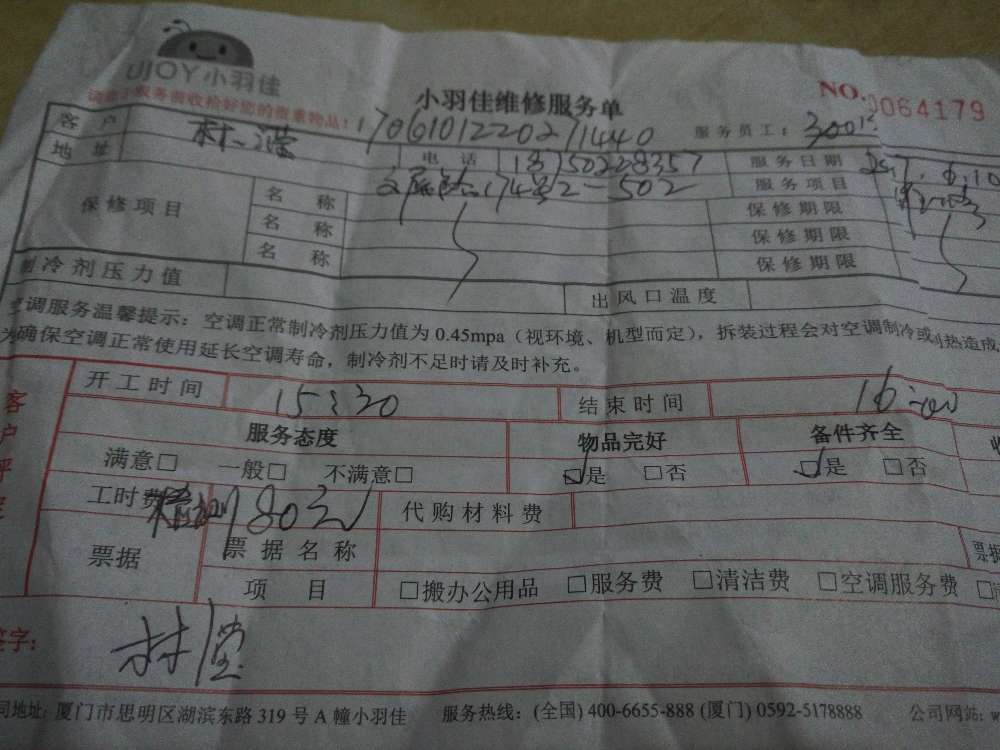 UJOY小羽佳
小羽佳维修服务单
NO.0064179
17061012202711440
服务员工：
客户
电话
服务日期
地址
174号2-502
服务项目
保修项目
名称
保修期限
名称
保修期限
名称
保修期限
制冷剂压力值
出风口温度
空调服务温馨提示：空调正常制冷剂压力值为0.45mpa（视环境、机型而定），拆装过程会对空调制冷或制热造成
为确保空调正常使用延长空调寿命，制冷剂不足时请及时补充。
开工时间 15:30 结束时间 16:00
服务态度 物品完好 备件齐全
满意□ 一般□ 不满意□ ☑是 □否 ☑是 □否
工时费 检测 80元 代购材料费
票据 票据名称
项目 □搬办公用品 □服务费 □清洁费 □空调服务费
签字：
司地址：厦门市思明区湖滨东路319号A幢小羽佳 服务热线：(全国) 400-6655-888 (厦门) 0592-5178888 公司网站：w